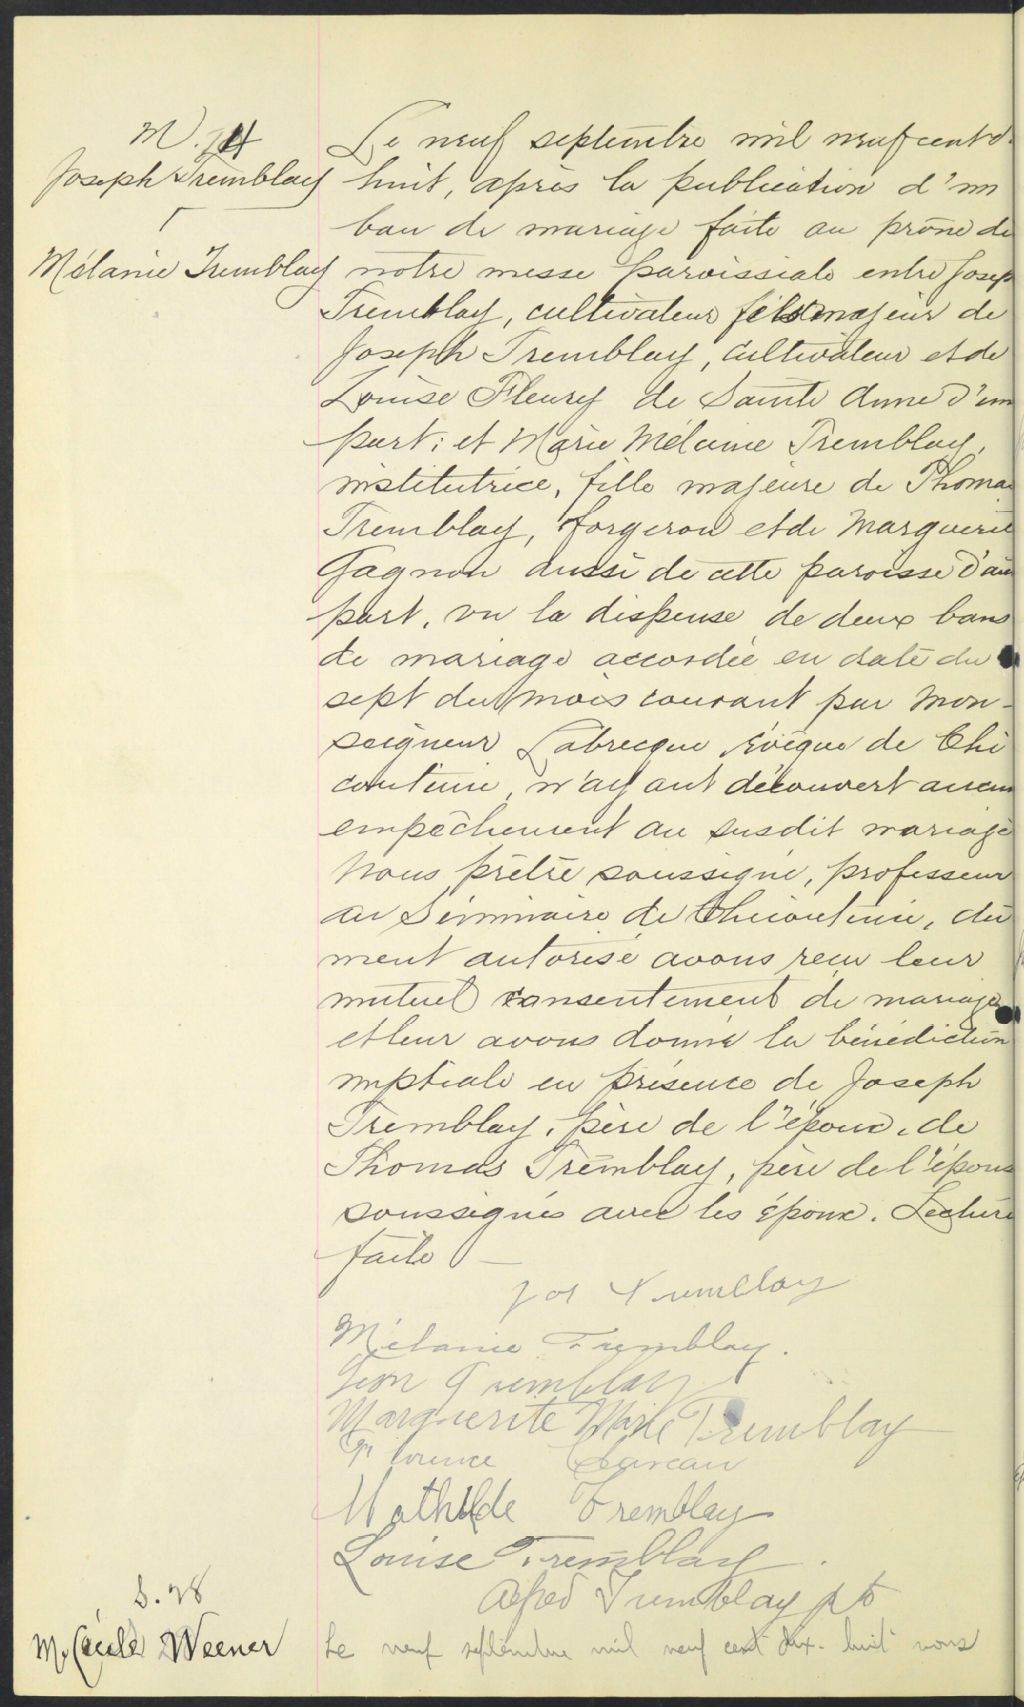 M. 14
Joseph Tremblay
Mélanie Tremblay
Le neuf septembre mil neuf cent d
huit, après la publication d'un
ban de mariage faite au prône de
notre messe paroissiale entre Josep
Tremblay, cultivateur fils majeur de
Joseph Tremblay, cultivateur et de
Louise Fleury de Sainte Anne d'une
part; et Marie Mélanie Tremblay,
institutrice, fille majeure de Thomas
Tremblay, forgeron et de Marguerite
Gagnon aussi de cette paroisse d'au
part, vu la dispense de deux bans
de mariage accordée en date du
sept du mois courant par Mon-
seigneur Labrecque évêque de Chi
coutimi, n'ayant découvert aucun
empêchement au susdit mariage
Nous, prêtre soussigné, professeur
au Séminaire de Chicoutimi, dû
ment autorisé avons reçu leur
mutuel consentement de mariage
et leur avons donné la bénédiction
nuptiale en présence de Joseph
Tremblay, père de l'époux, de
Thomas Tremblay, père de l'épouse
soussignés avec les époux. Lecture
faite
Jos Tremblay
Mélanie Tremblay.
Léon Tremblay
Marguerite Marie Tremblay
Florence Claveau
Mathilde Tremblay
Louise Tremblay.
Alfred Tremblay ptr
S. 28
M. Cécile Weener
Le neuf septembre mil neuf cent dix-huit nous